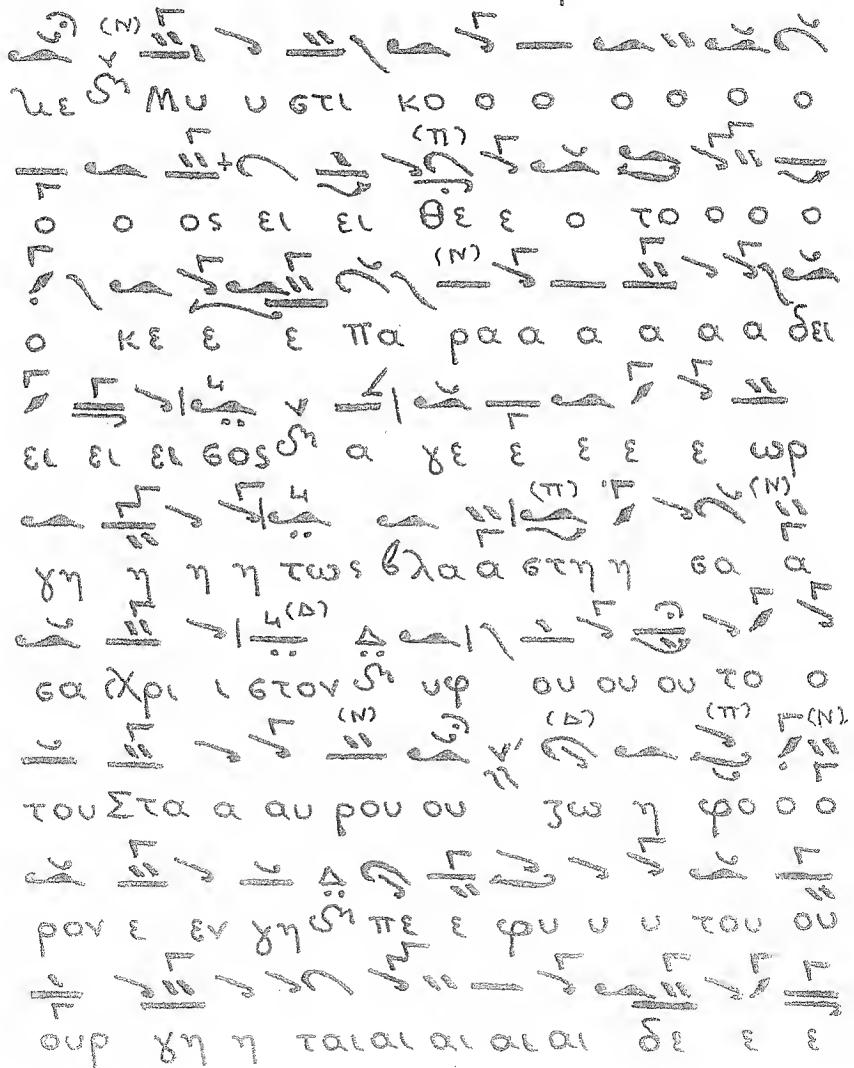 κε Μυ υ στι κο ο ο ο ο ο ο
ο ο ος ει ει Θε ε ο το ο ο ο
ο κε ε ε πα ρα α α α α α δει
ει ει ει σος α γε ε ε ε ε ωρ
γη η η η τως βλα α στη η σα α
σα Χρι ι στον υφ ου ου ου το ο
του Στα α αυ ρου ου ζω η φο ο ο
ρον ε εν γη πε ε φυ υ υ του ου
ουρ γη η ται αι αι αι αι δε ε ε